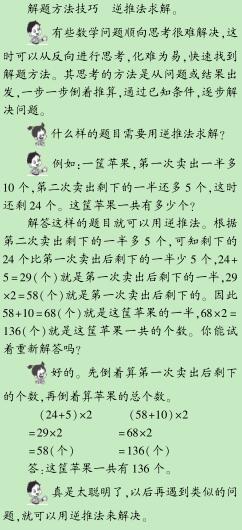 解题方法技巧 逆推法求解。
有些数学问题顺向思考很难解决,这
时可以从反向进行思考,化难为易,快速找到
解题方法。其思考的方法是从问题或结果出
发,一步一步倒着推算,通过已知条件,逐步解
决问题。
什么样的题目需要用逆推法求解?
例如:一筐苹果,第一次卖出一半多
10个,第二次卖出剩下的一半还多5个,这时
还剩24个。这筐苹果一共有多少个?
解答这样的题目就可以用逆推法。根据
第二次卖出剩下的一半多5个,可知剩下的
24个比第一次卖出后剩下的一半少5个,24+
5=29(个)就是第一次卖出后剩下的一半,29
×2=58(个)就是第一次卖出后剩下的。因此
58+10=68(个)就是这筐苹果的一半,68×2=
136(个)就是这筐苹果一共的个数。你能试
着重新解答吗?
好的。先倒着算第一次卖出后剩下
的个数,再倒着算苹果的总个数。
(24+5)×2 (58+10)×2
=29×2 =68×2
=58(个) =136(个)
答:这筐苹果一共有136个。
真是太聪明了,以后再遇到类似的问
题,就可以用逆推法来解决。